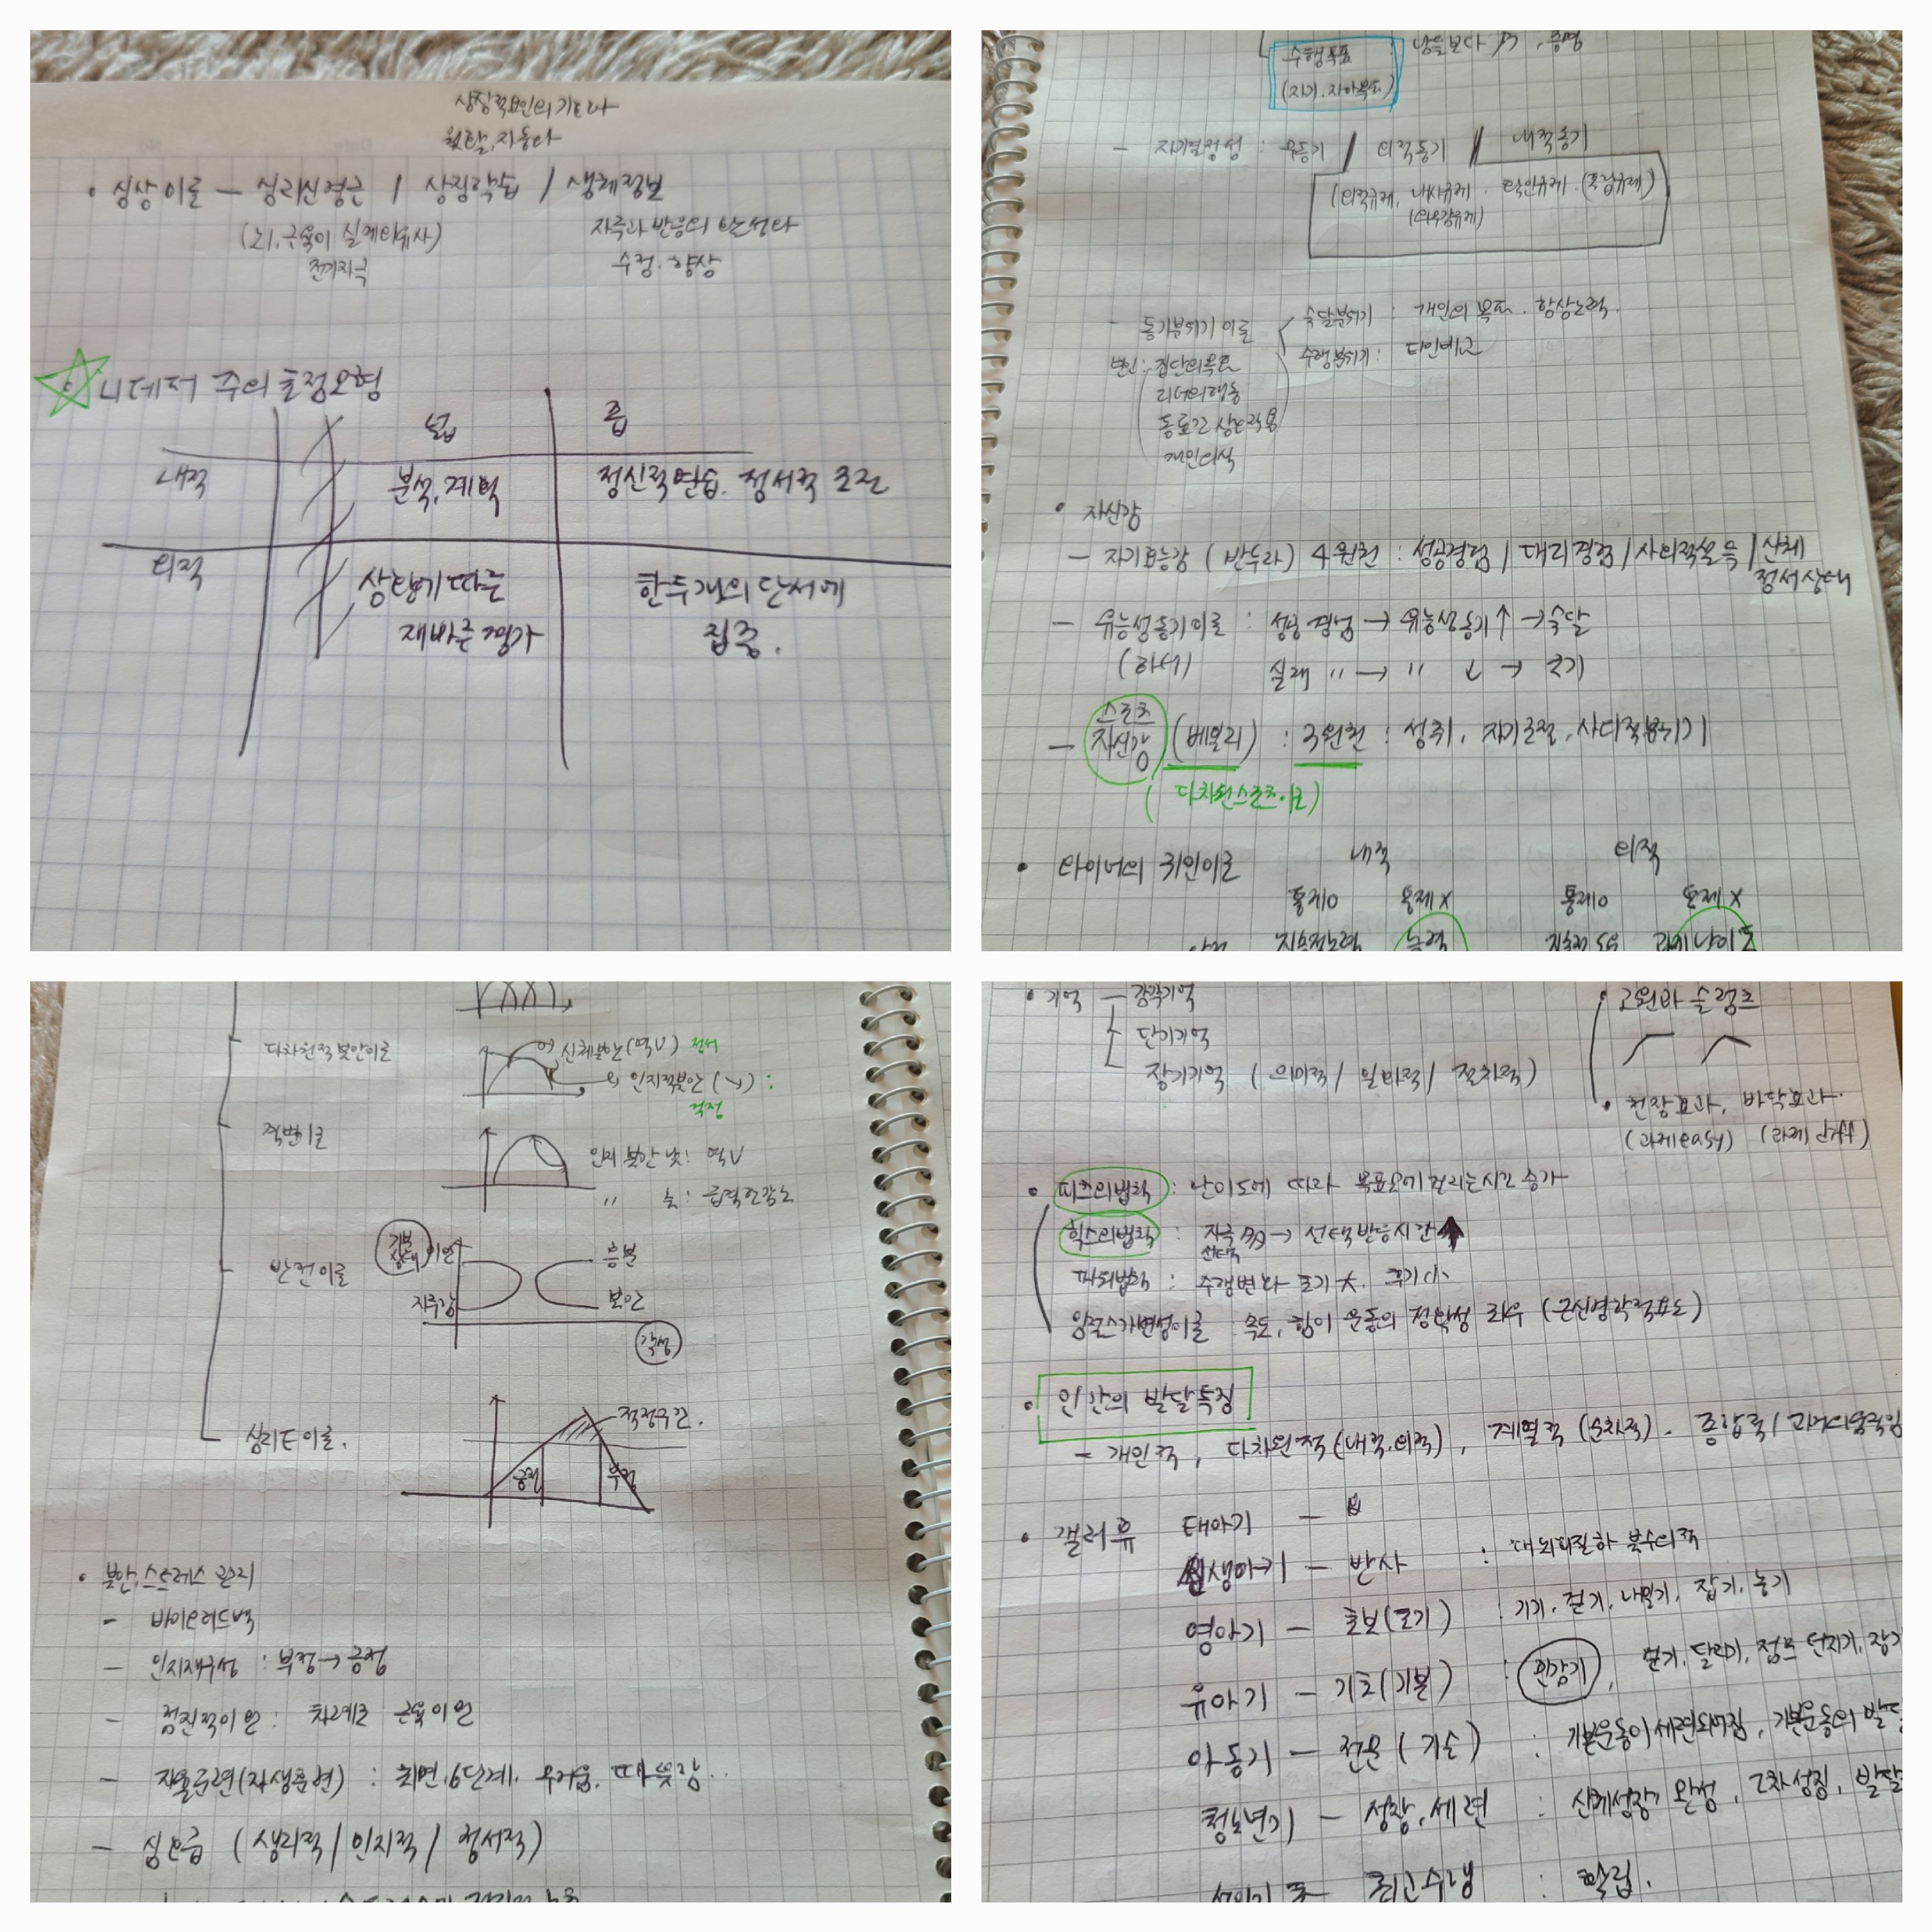 상징적요인의 기호다
원탈, 자동다
• 심상이론 - 심리신경근 / 상징학습 / 생체정보
(뇌, 근육이 실제와유사) 자극과 반응의 반성다
전기자극 수정·향상
니데퍼 주의초점모형
넓 좁
내적 분석, 계획 정신적연습, 정서적 조절
외적 상황에 따른 한두개의 단서에
재빠른 평가 집중.
수행목표
(자기, 자아목표)
- 자기결정성 : 무동기 / 외적동기 / 내적동기
(외적규제, 내사규제, 확인규제, (통합규제)
(의무감규제)
- 동기분위기 이론 숙달분위기 : 개인의 목표, 향상노력.
변인 : 집단의목표 수행분위기 : 타인비교
리더의행동
동료간 상호작용
개인의식
• 자신감
- 자기효능감 (반두라) 4원천 : 성공경험 / 대리경험 / 사회적설득 / 신체
정서상태
- 유능성동기이론 : 성공경험 → 유능성동기↑ → 숙달
(하터) 실패 " → " ↓ → 포기
- 스포츠
자신감 (베일리) : 3원천 : 성취, 자기조절, 사회적분위기
(다차원스포츠이론)
• 와이너의 귀인이론 내적 외적
통제o 통제x 통제o 통제x
지속적노력 능력 과제난이도
다차원적불안이론 신체불안(역U) 정서
인지적불안(↘) :
걱정
격변이론 인지 불안 낮 : 역U
" 높 :
반전이론 기분상태 이완 흥분
지루함 불안
각성
심리E이론. 적정구간.
긍정 부정
• 불안, 스트레스 관리
- 바이오피드백
- 인지재구성 : 부정→긍정
- 점진적이완 : 차례로 근육이완
- 자율훈련(자생훈련) : 최면, 6단계, 무거움, 따뜻함..
- 심호흡 (생리적 / 인지적 / 정서적)
• 기억 - 감각기억 • 고원과 슬럼프
단기기억
장기기억 (의미적 / 일화적 / 절차적)
• 천장효과, 바닥효과.
(과제easy) (과제diff)
• 피츠의법칙 : 난이도에 따라 목표물에 걸리는시간 증가
힉스의법칙 : 자극 多 → 선택반응시간↑
선택
파워법칙 : 수행변화 초기 大, 후기 小
임펄스가변성이론 속도, 힘이 운동의 정확성 좌우 (근신경학적효도)
• 인간의 발달특징
- 개인적, 다차원적(내적,외적), 계열적(순차적), 종합적 / 과거의움직임
• 갤러휴 태아기 -
신생아기 - 반사 : 대뇌피질하 불수의적
영아기 - 초보(초기) : 기기, 걷기, 내밀기, 잡기, 놓기
유아기 - 기초(기본) : 민감기, 걷기, 달리기, 점프 던지기, 잡기
아동기 - 전문(기술) : 기본운동이세련되어짐, 기본운동의 발달
청소년기 - 성장, 세련 : 신체성장 완성, 2차성징, 발달
최고수행 : 확립.